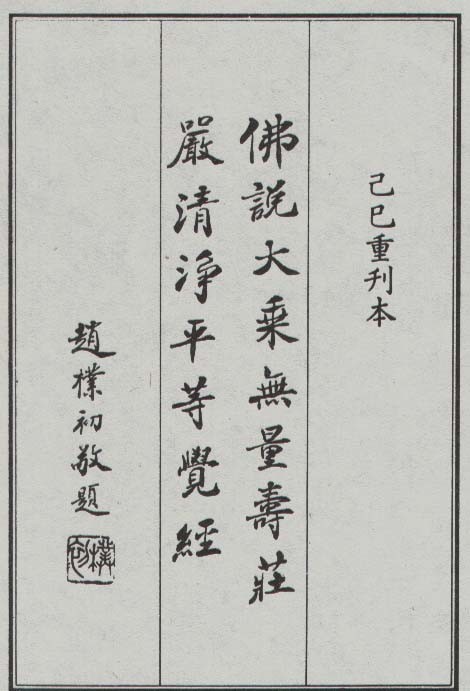 己巳重刊本
佛説大乘無量壽莊
嚴清浄平等覺經
趙樸初敬題
樸初